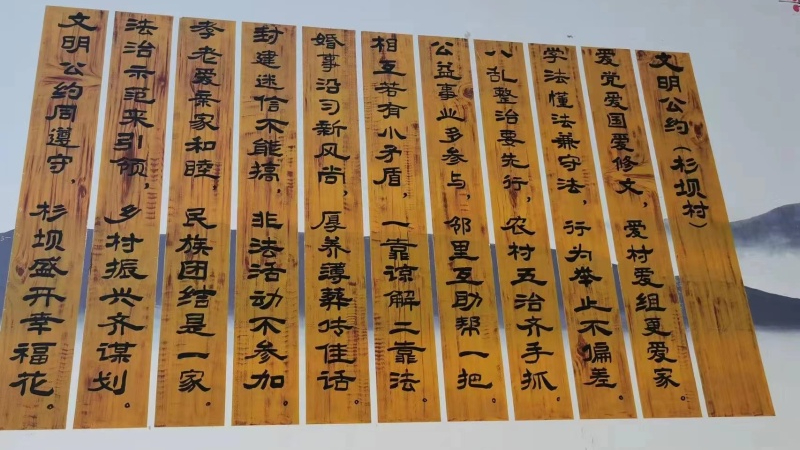 文明公约（杉坝村）
爱党爱国爱修文，爱村爱组更爱家。
学法懂法兼守法，行为举止不偏差。
八乱整治要先行，农村五治齐手抓。
公益事业多参与，邻里互助帮一把。
相互若有小矛盾，一靠谅解二靠法。
婚事沿习新风尚，厚养薄葬传佳话。
封建迷信不能搞，非法活动不参加。
孝老爱亲家和睦，民族团结是一家。
法治示范来引领，乡村振兴齐谋划。
文明公约同遵守，杉坝盛开幸福花。